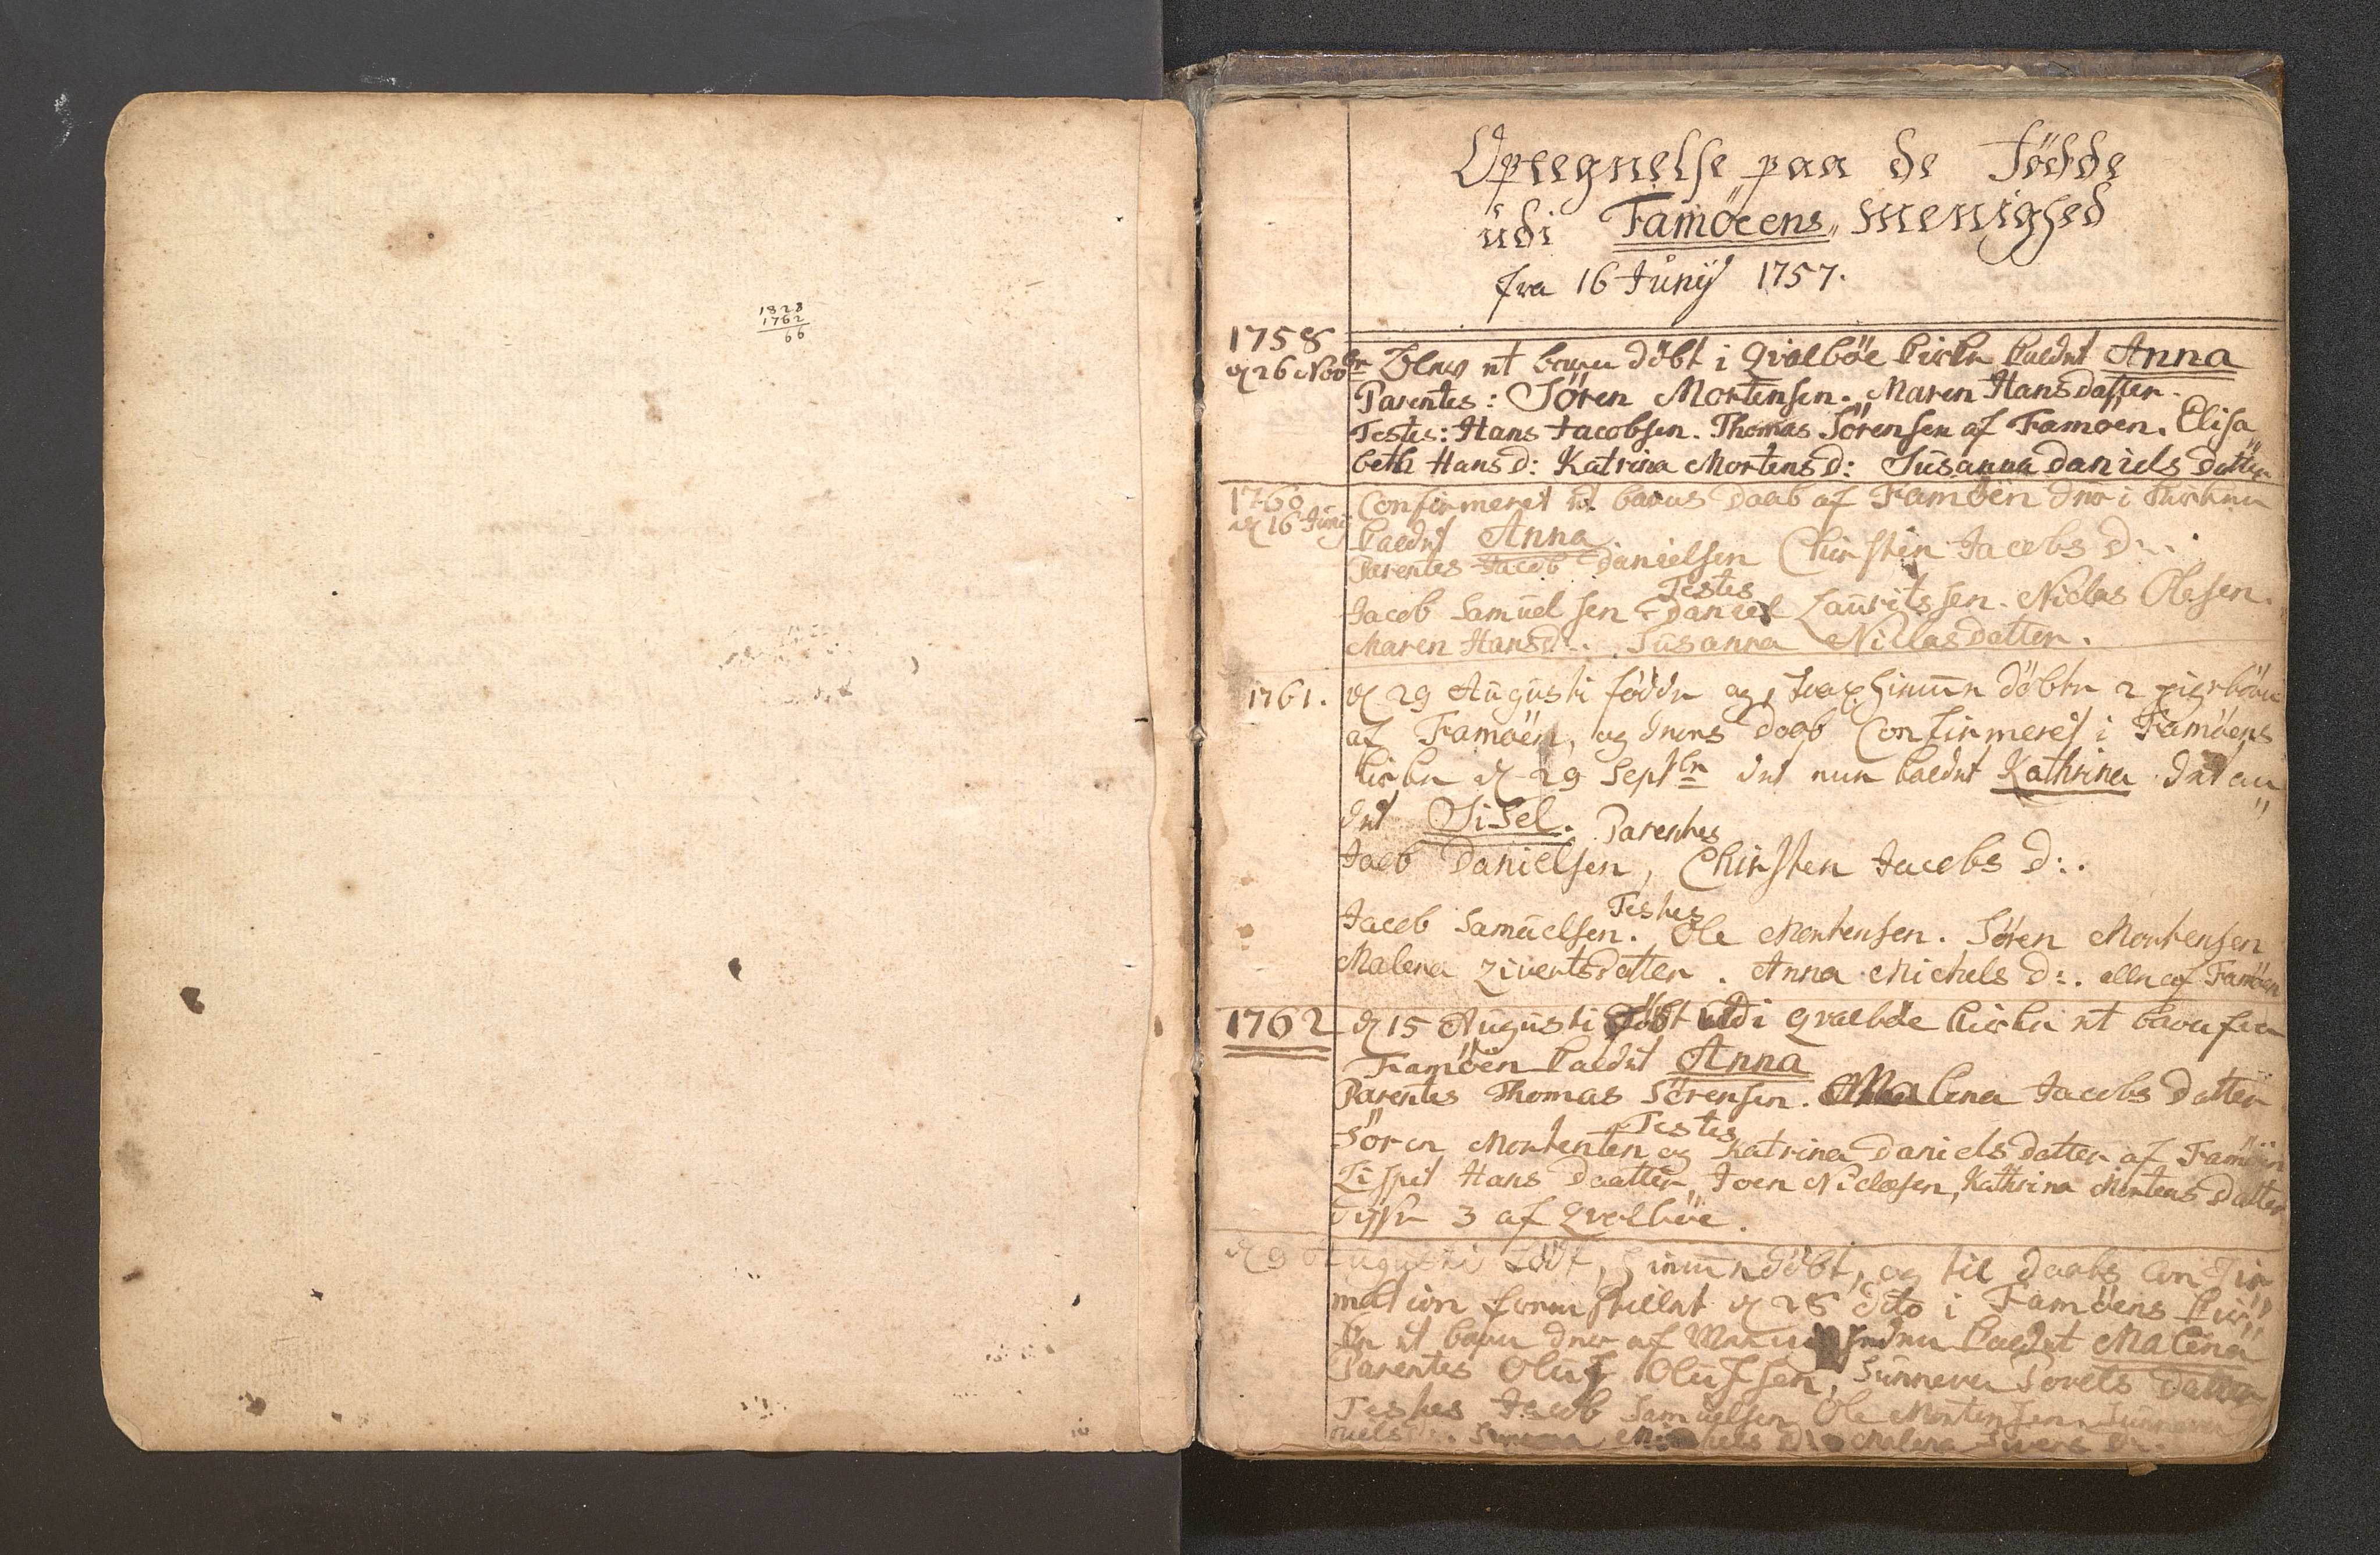 1823
1762
66
Opteegnelse paa de Födde
üdi Famöeens Menighed
fra 16 Junÿ 1757.
1758
d 26 Novbr Blev et barn döbt i Qvalböe kirke kaldet Anna
Parentes: Sören Mortensen. Maren Hansdatter.
Testes: Hans Jacobsen. Thomas Sörensen af Famöen. Elisa
beth Hansd: Katrina Mortensd: Susanna Daniels Datter
1760
d 16 Junÿ Confirmeret et barns Daab af Famöen der i kirken
kaldet Anna
Parentes Jacob Danielsen Chirsten Jacobs D:.
Testes
Jacob Samuelsen Daniel Lauritssen. Niclas Olesen.
Maren Hansd:. Susanna Niclasdatter.
1761. d 29 Augusti födde og hiemme döbte 2 pigebörn
af Famöen, og deres daab Confirmeret i Famöens
kirke d 29 Septbr det eene kaldet Kathrina det an
det Sisel. Parentes
Jacob Danielsen, Chirsten Jacobs D:.
Testes
Jacob Samuelsen. Ole Mortensen. Sören Mortensen
Malena Zivertsdatter. Anna Michels D:. alle af Famöen
1762 d 15 Augusti Döbt udi Qvalböe kirke et barn fra
Famöen kaldet Anna
Parentes Thomas Sörensen. Malena Jacobs Datter
Testes
Sören Mortensen og Katrina Daniels datter af Famöen
Lisspet Hans Daatter Joen Niclesen, Kathrina Mortens Datter
disse 3 af Qvalböe.
d 9 Augusti Födt, hiemme döbt, og til Daabs Confir
mation fremstillet d 28 dito i Famöens kir
ke et barn der af kaldet Malena
Parentes Oluf Olufsen, Sunneva Datter
Testes Jacob Samuelsen Ole Mortensen Sunneva
Malena